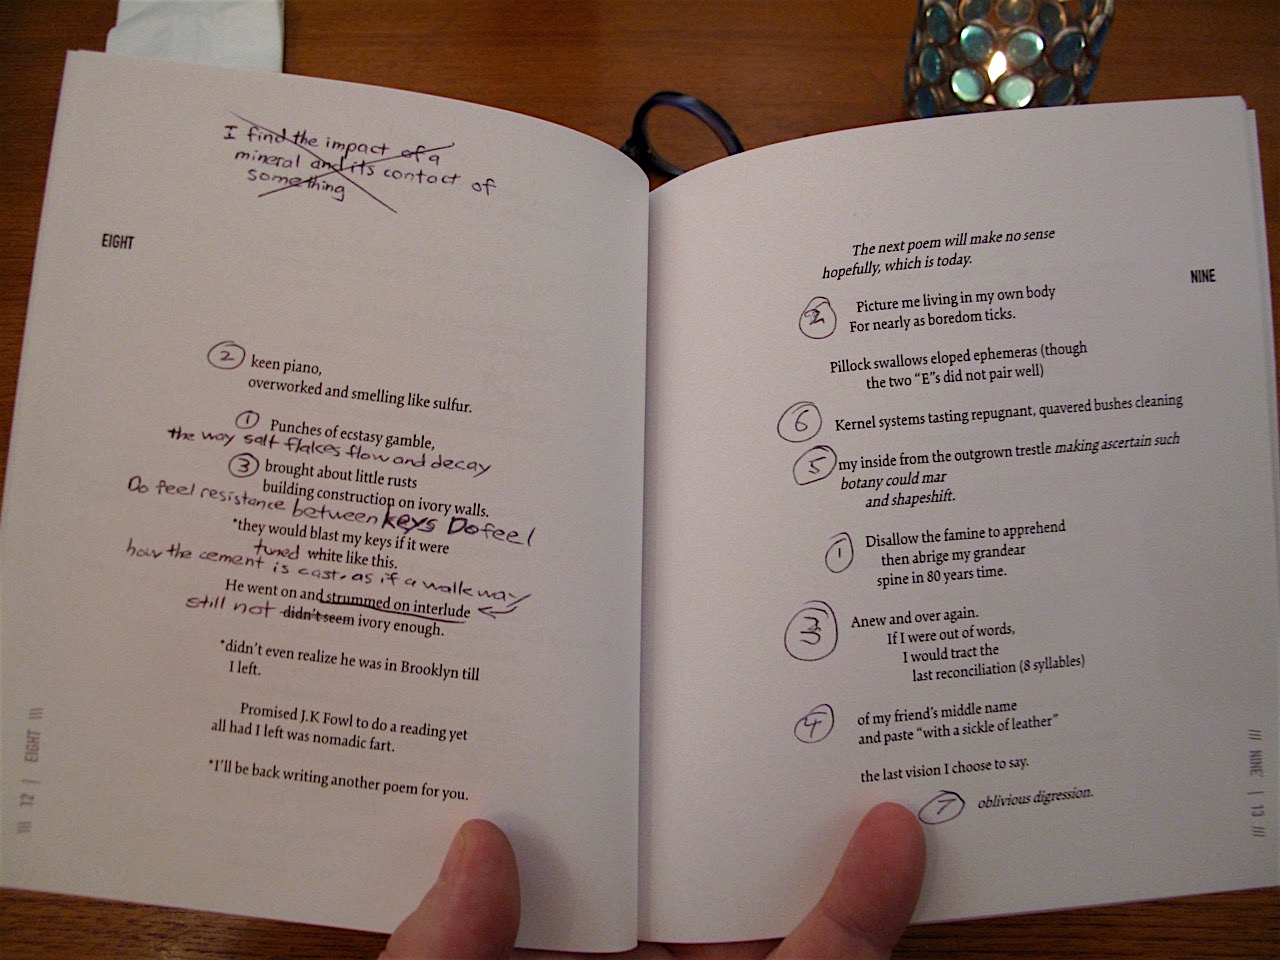 I find the impact of a
mineral and its contact of
something
EIGHT
2 keen piano,
overworked and smelling like sulfur.
1 Punches of ecstasy gamble,
the way salt flakes flow and decay
3 brought about little rusts
building construction on ivory walls.
Do feel resistance between keys Do feel
*they would blast my keys if it were
tuned white like this.
how the cement is cast, as if a walkway
He went on and strummed on interlude
still not didn't seem ivory enough.
*didn't even realize he was in Brooklyn till
I left.
Promised J.K Fowl to do a reading yet
all had I left was nomadic fart.
*I'll be back writing another poem for you.
/// 12 | EIGHT ///
The next poem will make no sense
hopefully, which is today.
NINE
2 Picture me living in my own body
For nearly as boredom ticks.
Pillock swallows eloped ephemeras (though
the two “E”s did not pair well)
6 Kernel systems tasting repugnant, quavered bushes cleaning
5 my inside from the outgrown trestle making ascertain such
botany could mar
and shapeshift.
1 Disallow the famine to apprehend
then abrige my grandear
spine in 80 years time.
3 Anew and over again.
If I were out of words,
I would tract the
last reconciliation (8 syllables)
4 of my friend's middle name
and paste “with a sickle of leather”
the last vision I choose to say.
7 oblivious digression.
/// NINE | 13 ///